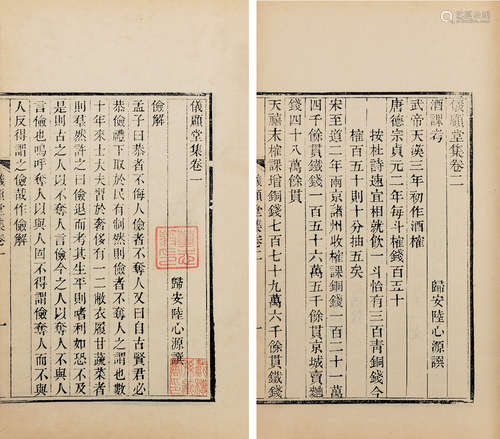 儀顧堂集卷一
歸安陸心源譔
儉解
孟子曰恭者不侮人儉者不奪人又曰自古賢君必
恭儉禮下取於民有制然則儉者不奪人之謂也數
十年來士大夫習於奢侈有一二敝衣履甘蔬菜者
則羣然許之曰儉退而考其生平則嗜利如恐不及
是則古之人以不奪人言儉今之人以奪人不與人
言儉也嗚呼奪人以與人固不得謂儉奪人而不與
人反得謂之儉哉作儉解
儀顧堂集卷一
一
儀顧堂集卷二
歸安陸心源譔
酒課考
武帝天漢三年初作酒榷
唐德宗貞元二年每斗榷錢百五十
按杜詩速宜相就飲一斗恰有三百青銅錢今
榷百五十則十分抽五矣
宋至道二年兩京諸州收榷課銅錢一百二十一萬
四千餘貫鐵錢一百五十六萬五千餘貫京城賣麯
錢四十八萬餘貫
天禧末榷課增銅錢七百七十九萬六千餘貫鐵錢
儀顧堂集卷二
一